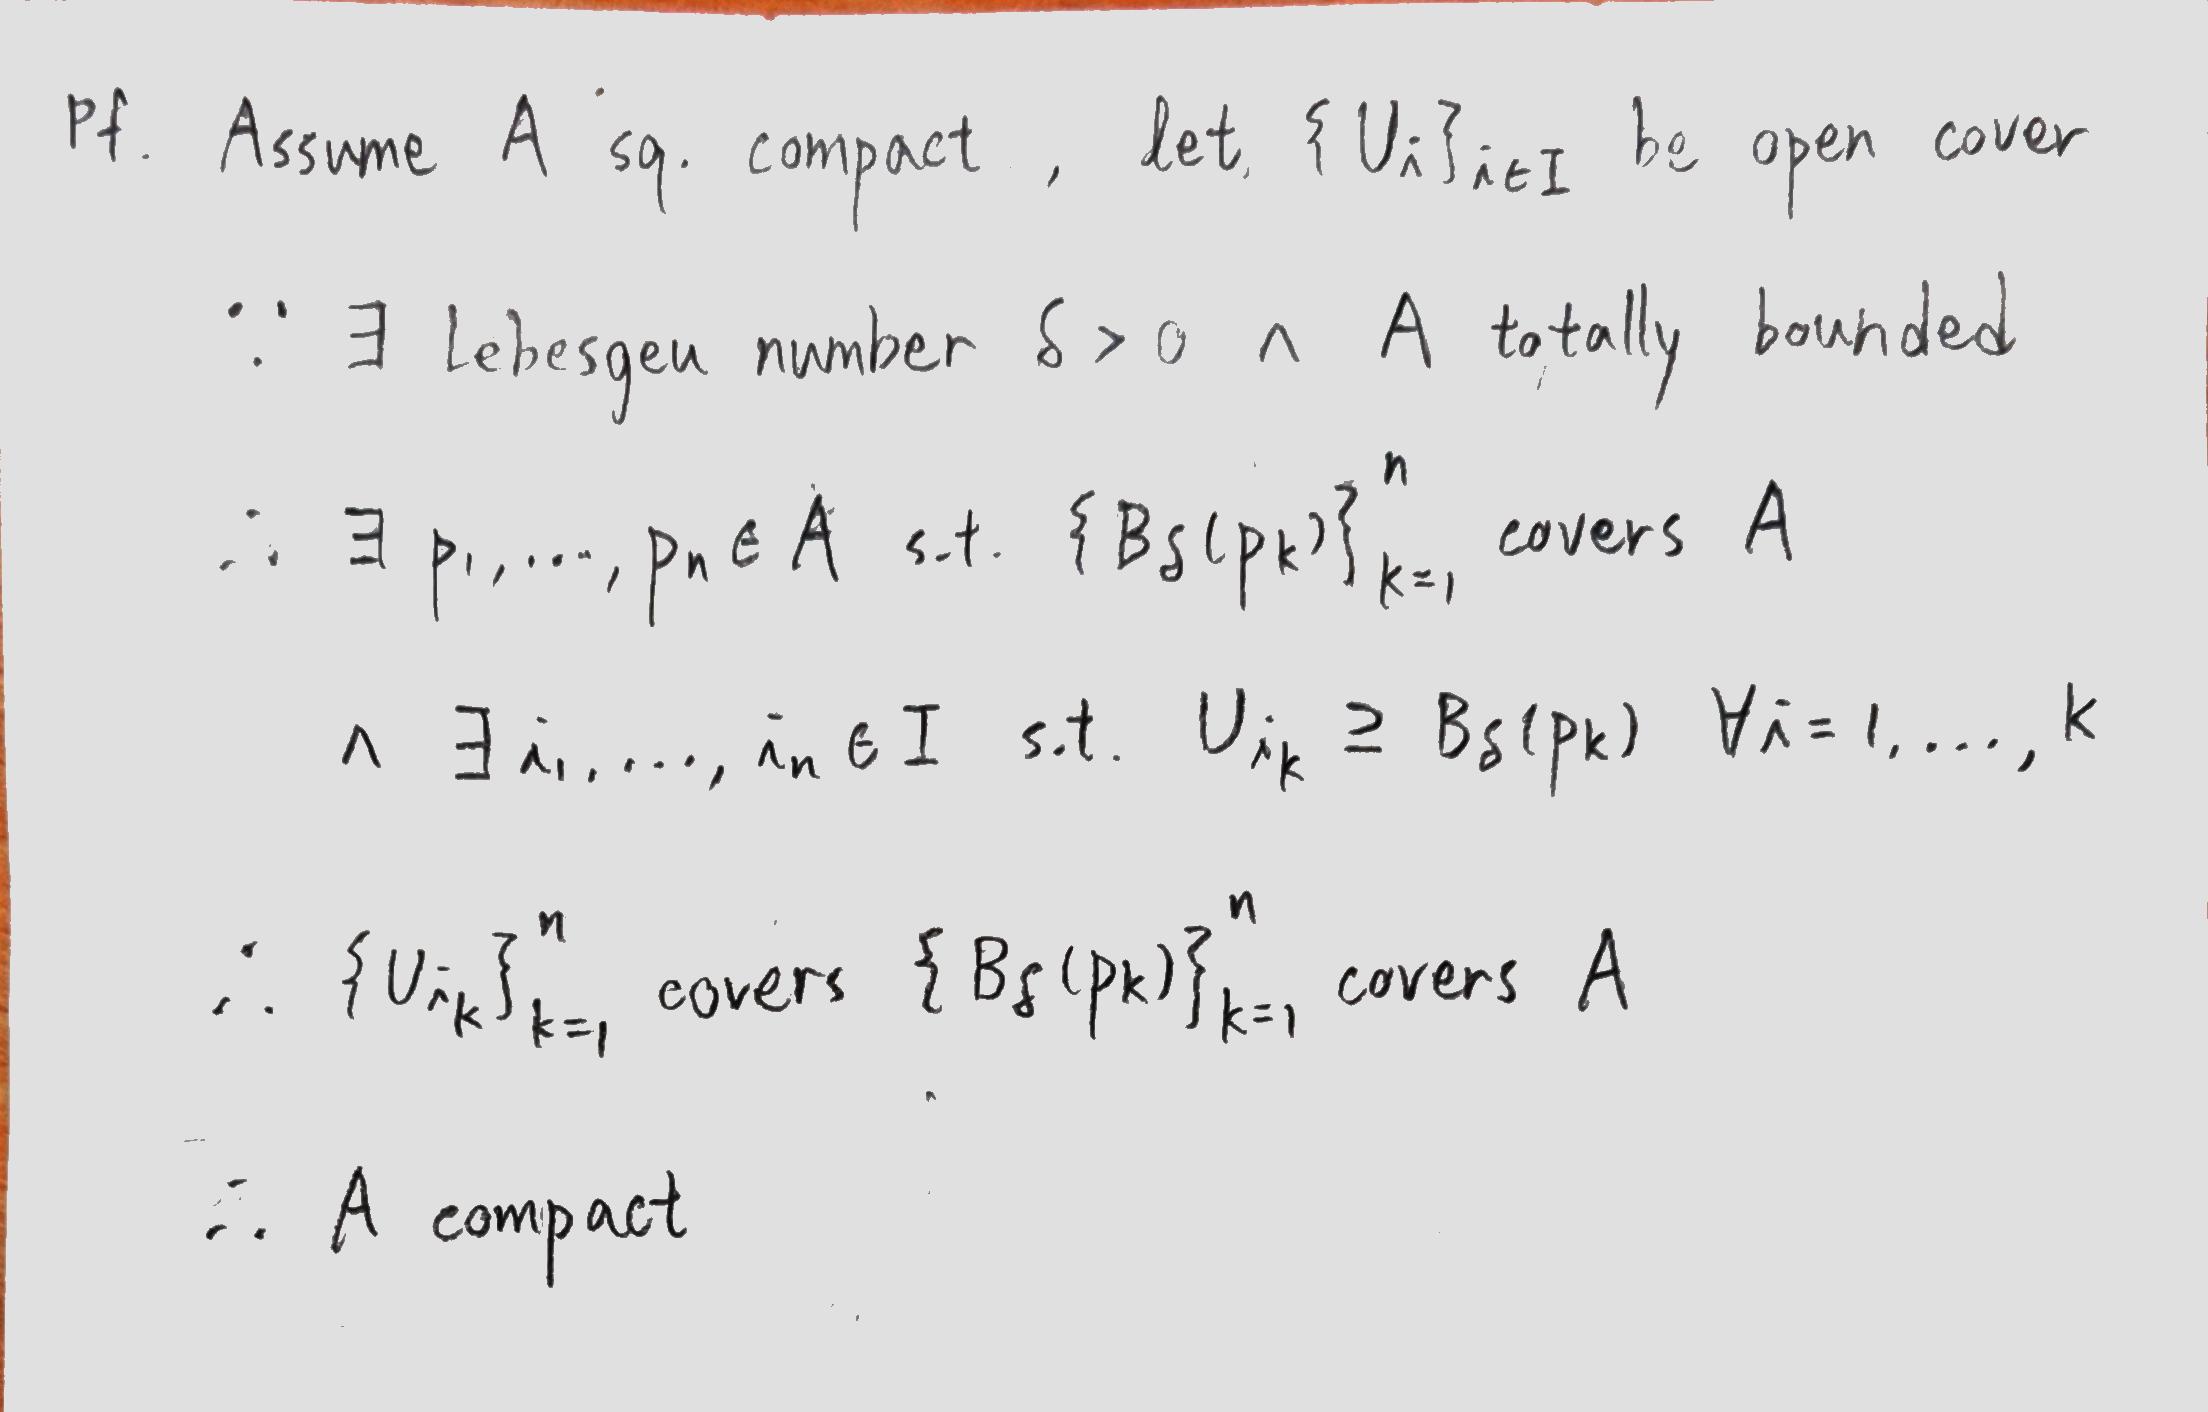 Pf. Assume A sq. compact, let {Uᵢ}ᵢ∈I be open cover
∵ ∃ Lebesgeu number δ > 0 ∧ A totally bounded
∴ ∃ p₁, ..., pₙ ∈ A s.t. {B_δ(pₖ)}ⁿₖ₌₁ covers A
∧ ∃ i₁, ..., iₙ ∈ I s.t. U_{i_k} ⊇ B_δ(pₖ) ∀i = 1, ..., k
∴ {U_{i_k}}ⁿₖ₌₁ covers {B_δ(pₖ)}ⁿₖ₌₁ covers A
∴ A compact